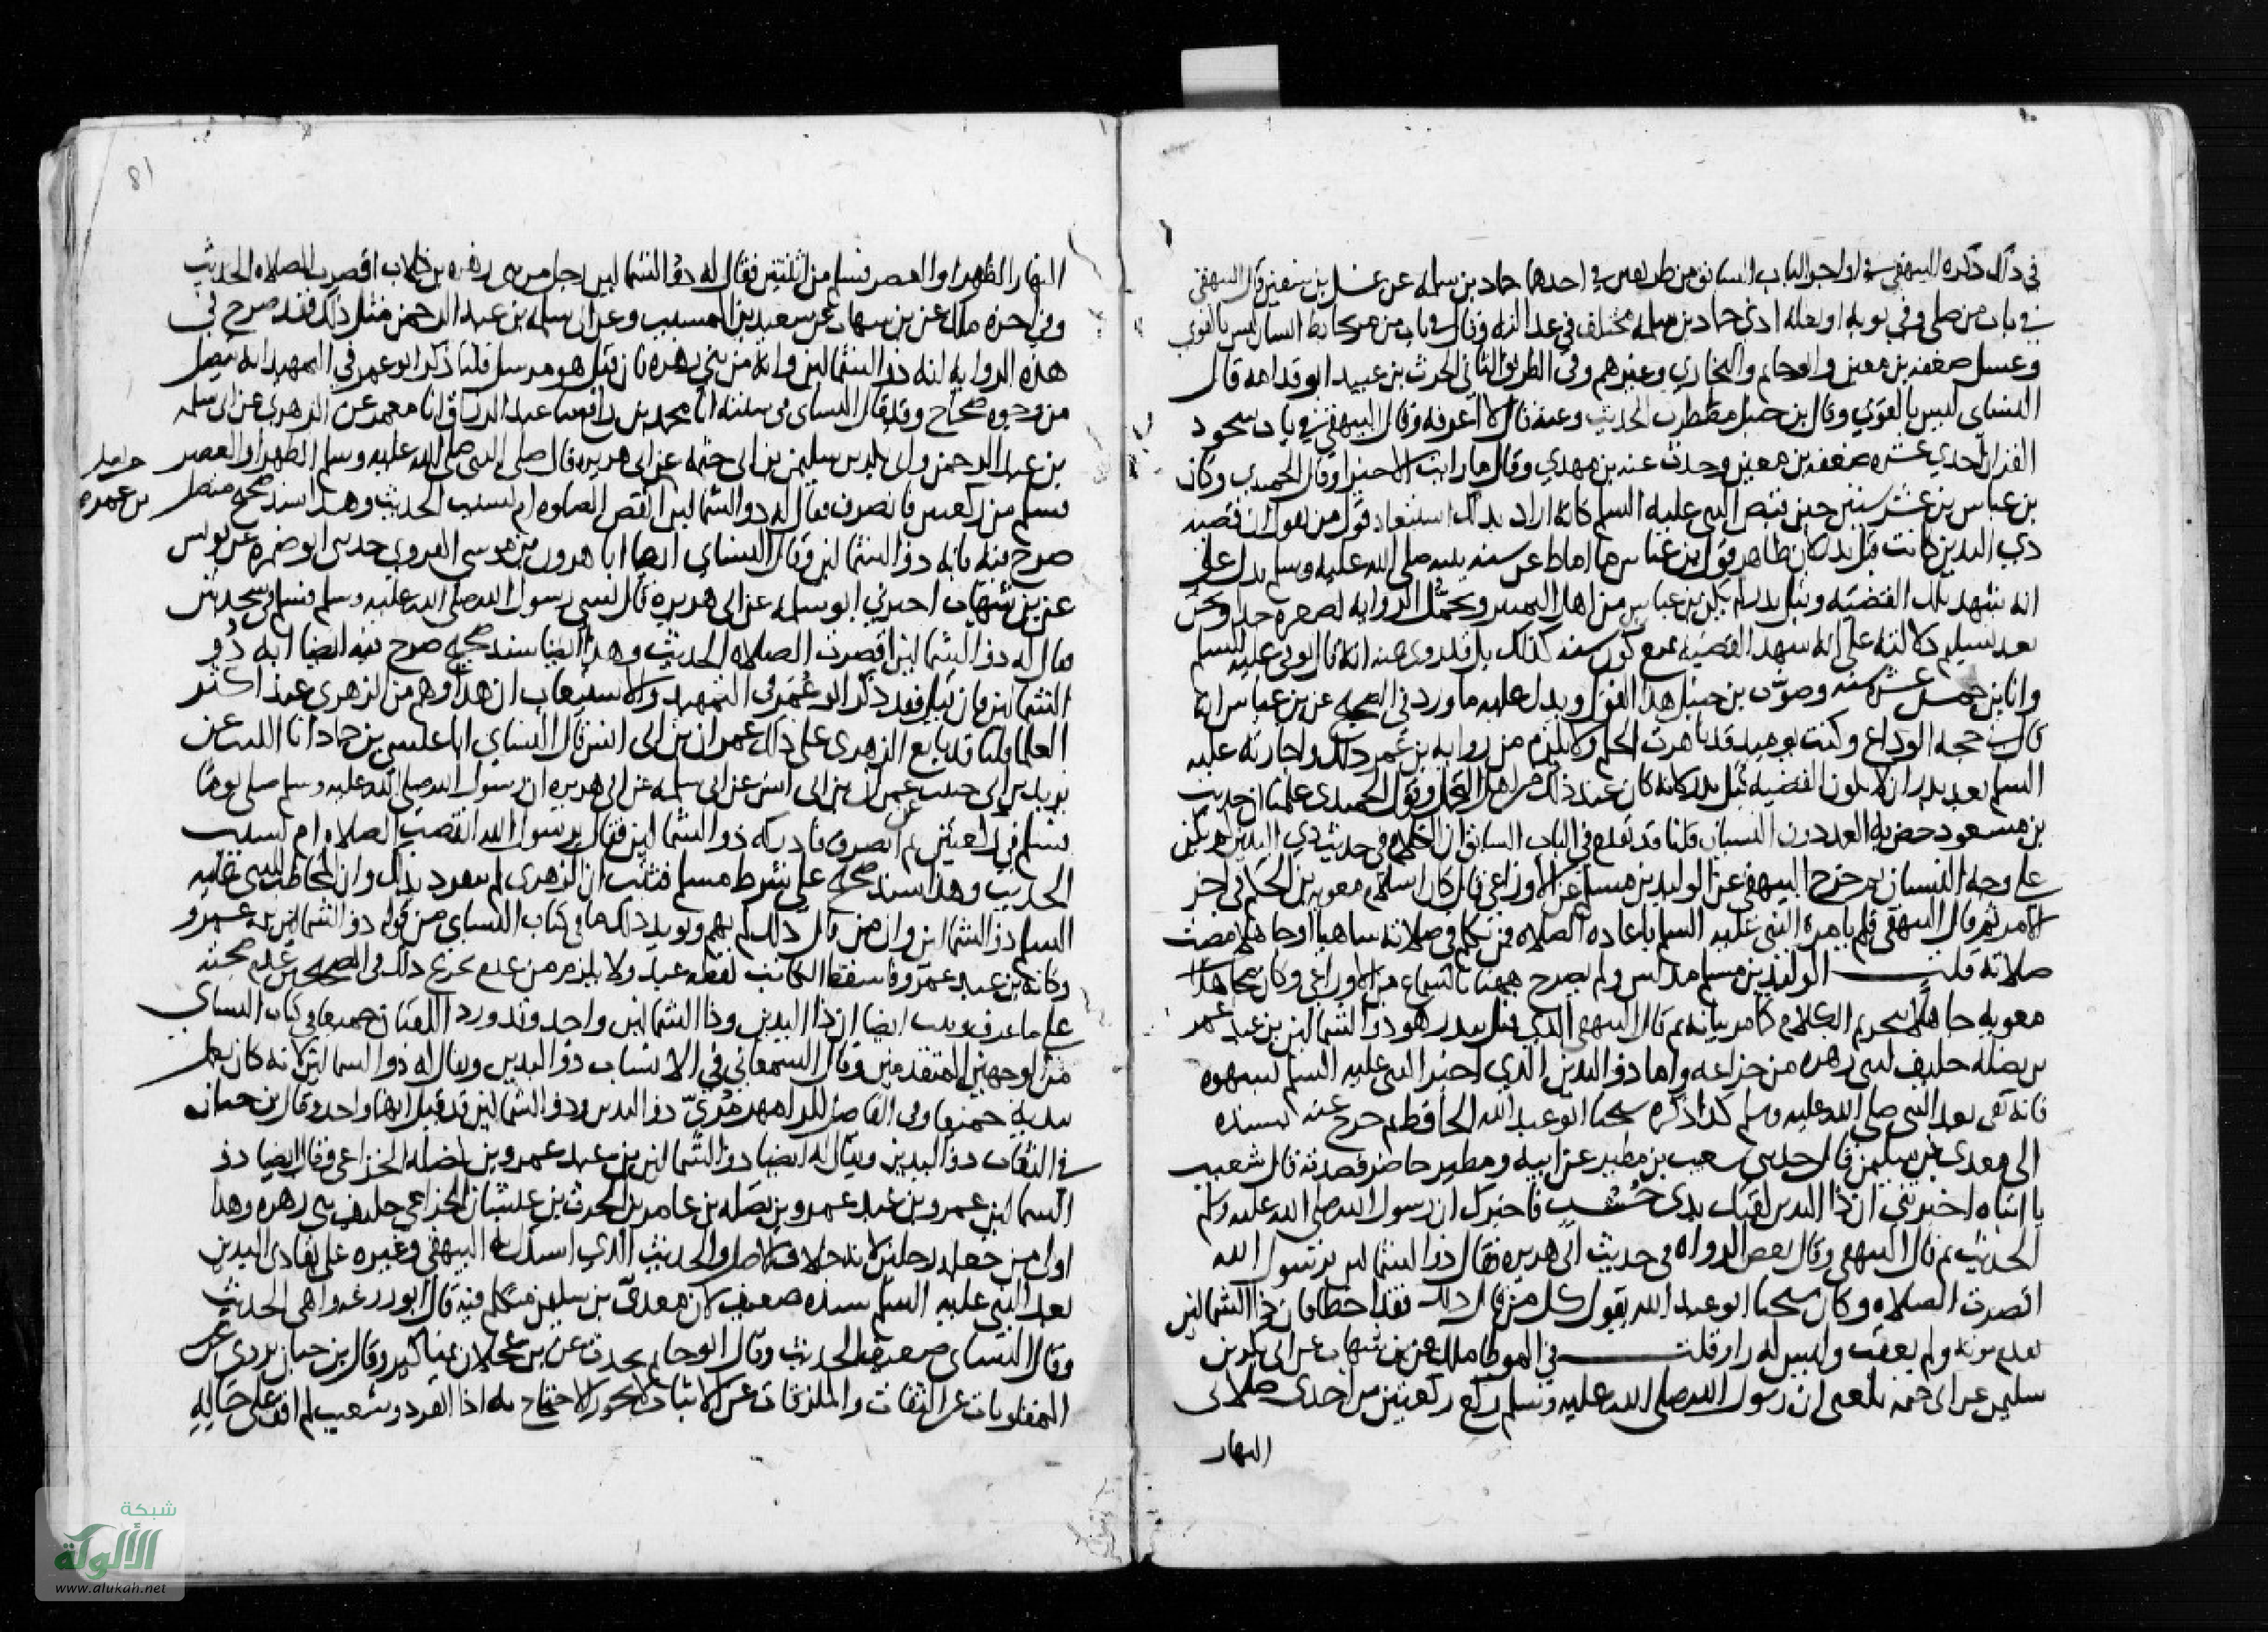 في ذلك ذكره البيهقي في اواخر الباب السابق من طريقين في احدهما حماد بن سلمة عن عسل بن سفين قال البيهقي
في باب من صلى وفي ثوبه او نعله اذى حماد بن سلمة مختلف في عدالته وقال في باب من مر بحائط انسان ليس بالقوي
وعسل ضعفه بن معين وابوحاتم والبخاري وغيرهم وفي الطريق الثاني الحرث بن عبيد ابو قدامه قال
النساي ليس بالقوي وقال بن حنبل مضطرب الحديث وعنه قال لا اعرفه وقال البيهقي في باب سجود
القران احدى عشره ضعفه بن معين وحدث عنه بن مهدي وقال ما رايت الا خيرا وقال الحميدي وكان
بن عباس بن عشر سنين حين قبض النبي عليه السلم كانه اراد بذلك استبعاد قول من يقول ان قصة
ذي اليدين كانت قبل بدر لان ظاهر قول بن عباس ما اماط عن سنه نبيه صلى الله عليه وسلم يدل على
انه شهد تلك القضيه وقبل بدر لم يكن بن عباس من اهل التمييز وتحمل الروايه لصغره جدا ونحن
بعد تسليم دلالته على انه شهد القضيه نمنع كون سنه كذلك بل قد روى عنه انه قال توفي عليه السلم
وانا بن خمس عشره سنه وصوب بن حنبل هذا القول ويدل عليه ما ورد في الصحيح عن بن عباس انه
قال في حجه الوداع وكنت يوميذ قد ناهزت الحلم ولا يلزم من روايه بن عمر ذلك واجازته عليه
السلم بعد بدر ان لا تكون القضيه قبل بدر لانه كان عند ذلك من اهل التحمل وقول الحميدي علمنا ان حديث
بن مسعود خص به العمد دون النسيان قلنا قد تقدم في الباب السابق ان الكلام في حديث ذي اليدين لم يكن
على وجه النسيان ثم خرج البيهقي عن الوليد بن مسلم عن الاوزاعي قال كان اسلام معويه بن الحكم في اخر
الامر ثم قال البيهقي فلم يامره النبي عليه السلم باعاده الصلاه فمن تكلم في صلاته ساهيا او جاهلا مضت
صلاته قلت الوليد بن مسلم مدلس ولم يصرح ههنا بالسماع من الاوزاعي وكان
معويه جاهلا بتحريم الكلام كما مر بيانه ثم قال البيهقي الذي قتل ببدر هو ذو الشمالين بن عبد عمر
بن نضله حليف لبني زهره من خزاعه واما ذو اليدين الذي اخبر النبي عليه السلم بسهوه
فانه بقى بعد النبي صلى الله عليه وسلم كذا ذكره شيخنا ابو عبد الله الحافظ ثم خرج عنه بسنده
الى معدى بن سليمن قال حدثني شعيب بن مطير عن ابيه ومطير حاضر فصدقه قال شعيب
يا ابتاه اخبرتني ان ذا اليدين لقيك بذي خشب فاخبرك ان رسول الله صلى الله عليه وسلم
الحديث ثم قال البيهقي وقال بعض الرواه في حديث ابي هريره فقال ذو الشمالين يرسول الله
اقصرت الصلاه وكان شيخنا ابو عبد الله يقول كل من قال ذلك فقد اخطا فان ذا الشمالين
تقدم موته ولم يعقب وليس له راو قلت في الموطا ملك عن بن شهاب عن ابي بكر بن
سليمن عن ابي حثمه بلغني ان رسول الله صلى الله عليه وسلم ركع ركعتين من احدى صلاتي
النهار
81
النهار الظهر او العصر فسلم من اثنتين فقال له ذو الشمالين رجل من بني زهره بن كلاب اقصرت الصلاه الحديث
وفي اخره ملك عن بن شهاب عن سعيد بن المسيب وعن ابي سلمه بن عبد الرحمن مثل ذلك فقد صرح في
هذه الروايه انه ذو الشمالين وانه من بني زهره فان قيل هو مرسل قلنا ذكر ابو عمر في التمهيد انه متصل
من وجوه صحاح وقد قال النساي في سننه انا محمد بن رافع ثنا عبد الرزاق انا معمر عن الزهري عن ابي سلمه
بن عبد الرحمن وابي بكر بن سليمن بن ابي حثمه عن ابي هريره قال صلى النبي صلى الله عليه وسلم الظهر او العصر
فسلم من ركعتين فانصرف فقال له ذو الشمالين بن عمرو انقص الصلوه ام نسيت الحديث وهذا سند صحيح متصل
صرح فيه بانه ذو الشمالين وقال النساي ايضا انا هرون بن موسى الفروي حدثني ابو ضمره عن يونس
عن بن شهاب اخبرني ابو سلمه عن ابي هريره قال نسي رسول الله صلى الله عليه وسلم فسلم في سجدتين
فقال له ذو الشمالين اقصرت الصلاه الحديث وهذا ايضا سند صحيح صرح فيه ايضا انه ذو
الشمالين فان قيل فقد ذكر ابو عمر في التمهيد والاستيعاب ان هذا وهم من الزهري عند اكثر
العلما قلنا قد تابع الزهري على ذلك عمران بن ابي انس قال النساي انا عيسى بن حماد انا الليث عن
يزيد بن ابي حبيب عن عمران بن ابي انس عن ابي سلمه عن ابي هريره ان رسول الله صلى الله عليه وسلم صلى يوما
فسلم في ركعتين ثم انصرف فادركه ذو الشمالين فقال يرسول الله انقصت الصلاه ام نسيت
الحديث وهذا سند صحيح على شرط مسلم فثبت ان الزهري لم ينفرد بذلك وان المخاطب للنبي عليه
السلم ذو الشمالين وان من قال ذلك لم يهم ويويد ذلك ما في كتاب النساي من قوله ذو الشمالين بن عمرو
وكانه بن عبد عمرو فاسقط الكاتب لفظه عبد ولا يلزم من عدم تخرج ذلك في الصحيحين عدم صحته
على ما عرف وثبت ايضا ان ذا اليدين وذا الشمالين واحد وقد ورد اللقبان جميعا في كتاب النساي
من الوجهين المتقدمين وقال السمعاني في الانساب ذو اليدين ويقال له ذو الشمالين لانه كان يعمل
بيديه جميعا وفي الفاصل للرامهرمزي ذو اليدين وذو الشمالين قد قيل انهما واحد وقال بن حبان
في الثقات ذو اليدين ويقال له ايضا ذو الشمالين بن عبد عمرو بن نضله الخزاعي وقال ايضا ذو
الشمالين عمرو بن عبد عمرو بن نضله بن عامر بن الحرث بن غبشان الخزاعي حليف بني زهره وهذا
اولى من جعله رجلين لانه خلاف الاصل والحديث الذي استدل به البيهقي وغيره على بقا ذي اليدين
بعد النبي عليه السلم سنده ضعيف لان معدي بن سليمن متكلم فيه قال ابو زرعه واهي الحديث
وقال النساي ضعيف الحديث وقال ابو حاتم يحدث عن بن عجلان مناكير وقال بن حبان يروي عن
المقلوبات عن الثقات والملزقات عن الاثبات لا يجوز الاحتجاج به اذا انفرد وشعيب لم اقف على حاله